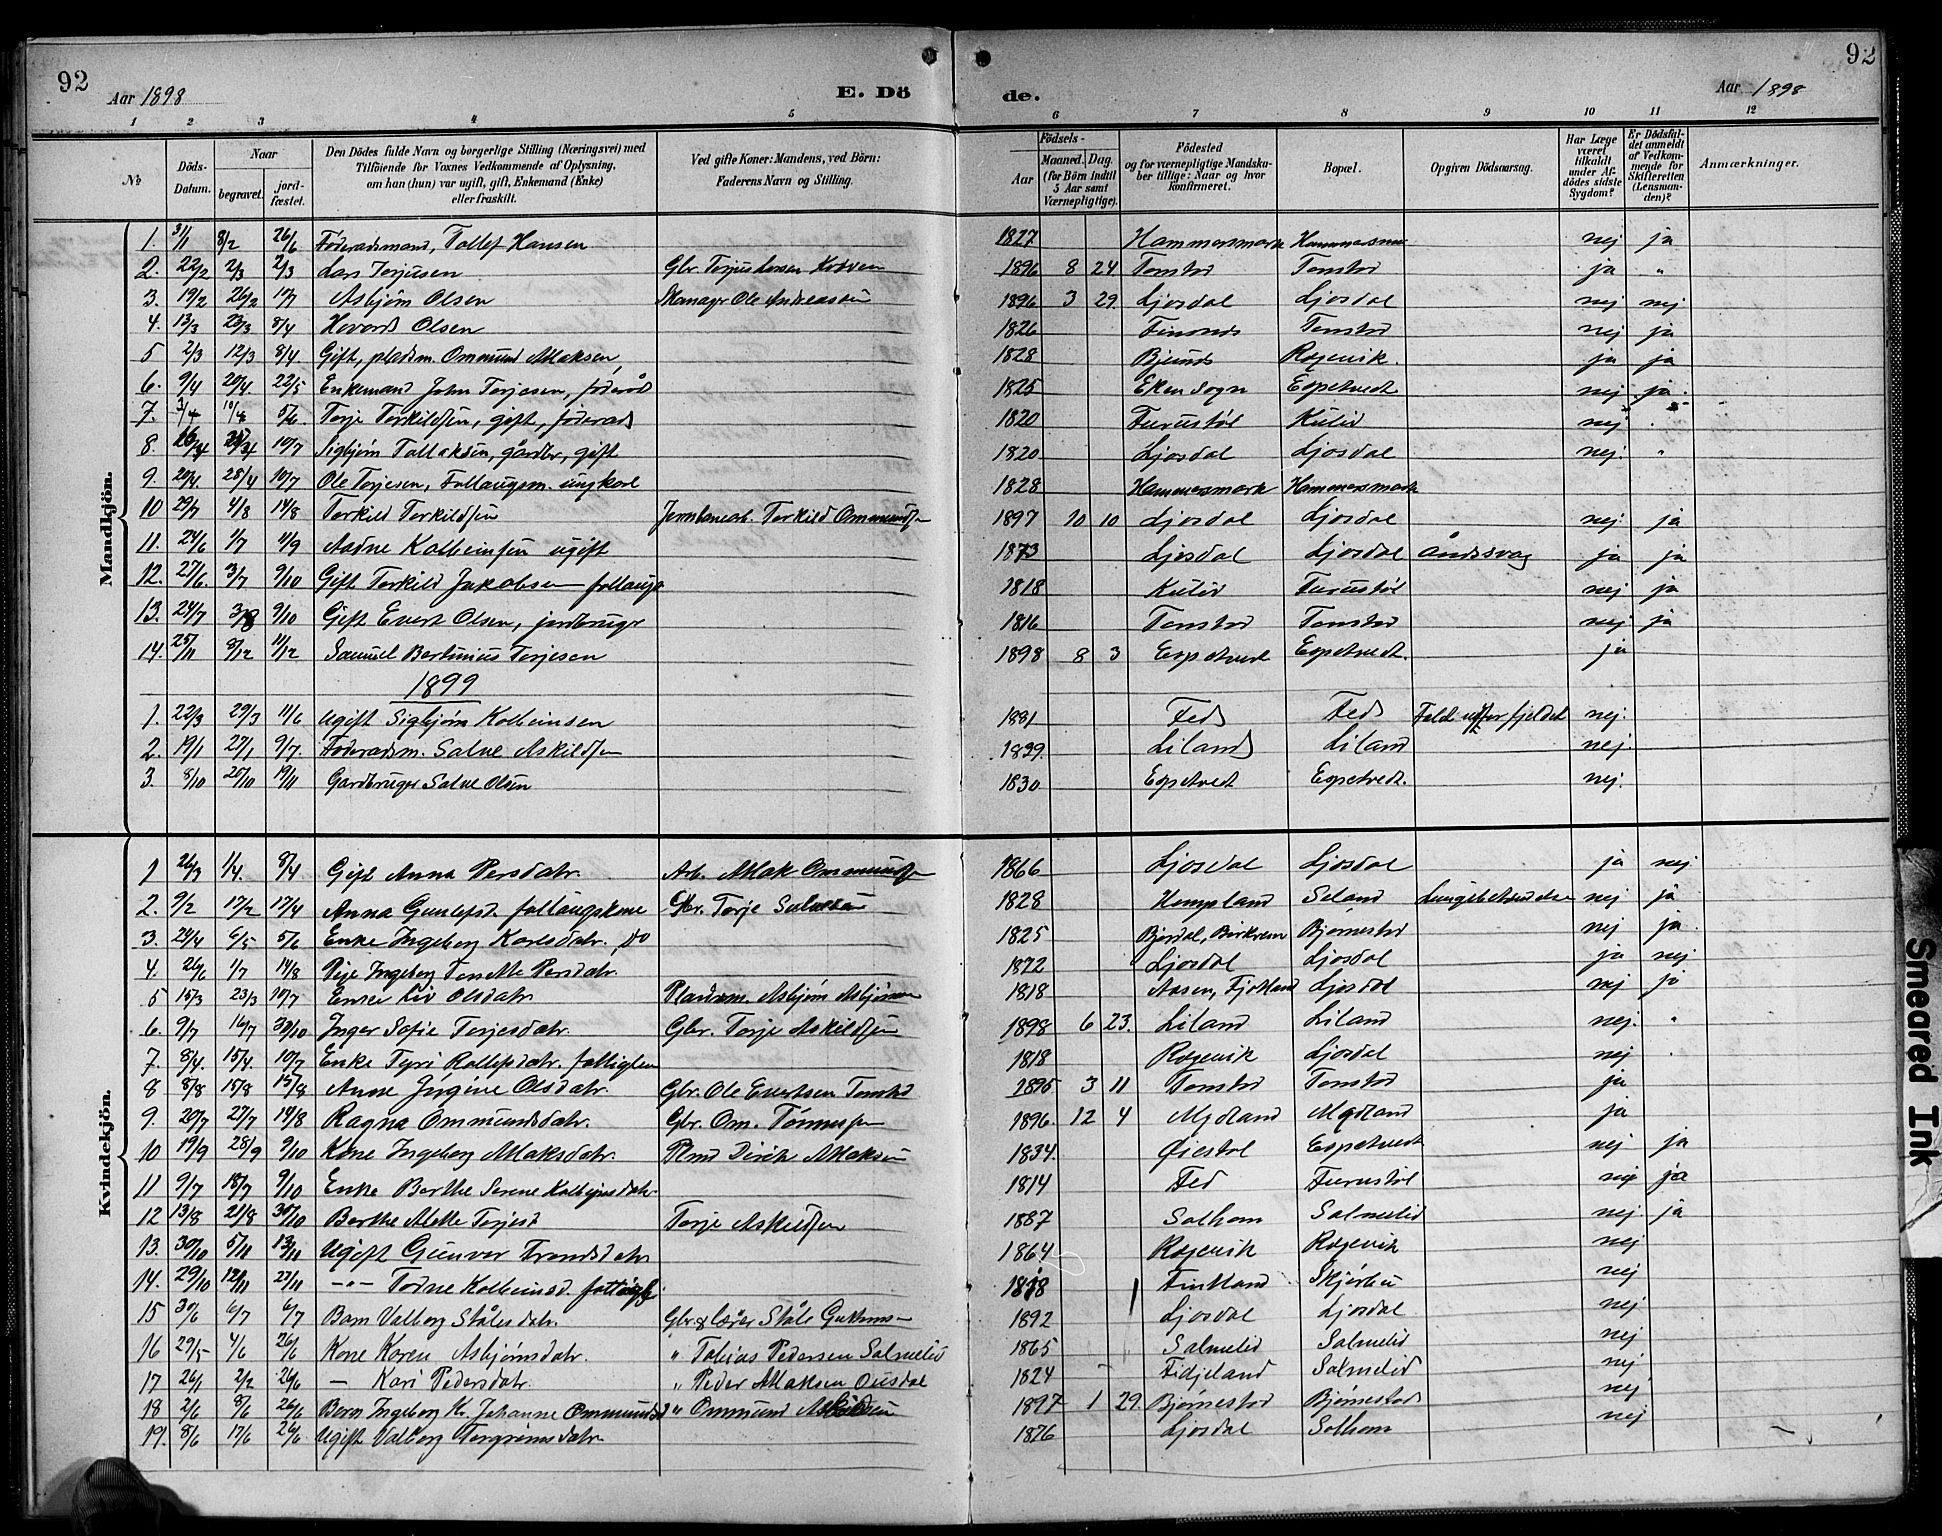 92
Aar 1898
E. Dö
de.
Aar 1898
92
1 2 3 4 5 6 7 8 9 10 11 12
No
Döds-Datum.
Naar
begravet.
jord-fæstet.
Den Dödes fulde Navn og borgerlige Stilling (Næringsvei) med
Tilföiende for Voxnes Vedkommende af Oplysning,
om han (hun) var ugift, gift, Enkemand (Enke)
eller fraskilt.
Ved gifte Koner: Mandens, ved Börn:
Faderens Navn og Stilling.
Födsels-
Aar
Maaned. Dag.
(for Börn indtil
5 Aar samt
Værnepligtige).
Födested
og for værnepligtige Mandska-
ber tillige: Naar og hvor
konfirmeret.
Bopæl.
Opgiven Dödsaarsag.
Har Læge
været
tilkaldt
under Af-
dödes sidste
Sygdom?
Er Dödsfal-
det anmeldt
af Vedkom-
mende for
Skifteretten
(Lensman-
den)?
Anmærkninger.
Mandkjön.
1. 31/1 8/2 26/6 Föderaadsmand, Tollef Hansen 1827 Hammersmark nej ja
2. 22/2 2/3 2/3 Lars Torjusen Gbr. Torjus Larsen 1896 8 24 Tonstad Tonstad ja "
3. 19/2 26/2 10/7 Asbjørn Olsen Ole Andreassen 1896 3 29. Ljosdal Ljosdal nej nej
4. 13/3 23/3 8/4 Hovard Olsen 1826 Tonstad nej ja
5 2/3 12/3 8/4 Gift, pladsm. Ommund Atlaksen, 1828 Røgevik. ja ja
6. 9/4 20/4. 22/5 Enkemand John Torjesen, föderåd 1825 Eken Sogn Espetvedt nej ja.
7. 3/4 10/4 5/6. Torje Torkildsen, gift, föderåd 1820 Furustøl Kulid nej "
8. 10/7 Sigbjørn Tallaksen, gårdbr., gift 1820 Ljosdal Ljosdal nej. "
9. 20/4 28/4 10/7 Ole Torjesen, Fattaugsm. ungkarl 1828 Hammersmark Hammersmark
10 29/7 4/8 14/8 Torkild Torkildsen Torkild Ommundsen 1897 10 10 Ljosdal Ljosdal nej ja
11. 24/6 1/7 11/9 Aadne Kolbeinsen ugift 1873 Ljosdal Ljosdal Åndssvag ja ja
12. 27/6 3/7 9/10 Gift Torkild Jakobsen fattaugs 1818 Kulid Furustøl nej ja
13. 24/7 3/8 9/10 Gift Evert Olsen, jordbruger 1816 Tonstad Tonstad nej ja
14. 25/11 8/12 11/12 Samuel Bertinius Torjesen 1898 8 3 Espetvedt Espetvedt. ja
1899
1. 22/3 29/3 11/6 Ugift Sigbjørn Kolbeinsen 1881 Fed Fed Faldt utfor fjeldet nej.
2. 19/1 27/1 9/7. Föderadsm. Salve Askildsen 1829. Liland Liland nej.
3. 8/10 20/10 19/11 Gardbruger Salve Olsen 1830 Espetvedt Espetvedt. nej.
Kvindekjön.
1 26/3 1/4. 8/4 Gift Anna Persdatr. Arb. Atlak Ommundsen 1866 Ljosdal Ljosdal ja nej.
2. 9/2 17/2 17/4 Anna Gunlefsd. fattaugskone Gbr. Torje 1828 Hompland Seland Lungebetændelse nej ja
3. 24/4 6/5 5/6 Enke Ingeborg Karlsdatr. do 1825 Bjordal, Birkrem Bjørnestad nej ja.
4. 26/6 1/7 14/8 Pige Ingeborg Tonette Persdatr. 1872 Ljosdal Ljosdal ja nej.
5 15/3 23/3 10/7 Enke Liv Olsdatr Pladsm. Asbjørn Asbjørnsen 1818 Aasen, Fjotland Ljosdal nej ja
6. 9/7 16/7 30/10 Inger Sofie Torjesdatr. Gbr. Torje Askildsen 1898 6 23. Liland Liland nej. "
7. 8/4. 15/4. 10/7 Enke Tyri Rollefsdatr. fattiglem 1818 Røgevik Ljosdal nej
8 8/8 15/8 15/8 Anne Jørgine Olsdatr. Gbr. Ole Evertsen Tonstad 1895. 3 11 Tonstad Tonstad ja
9. 20/7 27/7 14/8 Ragna Ommundsdatr. Gbr. Om. Tønnessen 1896. 12 4 Mydland Mydland ja
10 19/9 28/9 9/10 Kone Ingeborg Atlaksdatr. Plmd Dirik Atlaksen 1834. Øiestøl Espetvedt nej ja
11 9/7 18/7 9/10 Enke Berthe Serene Kolbeinsdatr. 1814 Fed Furustøl nej ja
12 13/8 21/8 30/10 Berthe Alette Torjesd Torje Askildsen 1887 Solhom Salmelid nej. ja
13. 30/10 5/11 13/11 Ugift Gunvor Trondsdatr 1864 Røgevik Røgevik nej
14. 29/10 12/11 27/11 —"— Todne Kolbeinsd. 1818 Fintland nej
15 30/6 6/7 6/7 Barn Valborg Ståledatr. Gbr & lærer Ståle 1892 Ljosdal Ljosdal nej
16 29/5 4/6 26/6 Kone Karen Asbjørnsdatr. " Tobias Pedersen Salmelid 1865 Salmelid Salmelid nej
17 26/1 2/2 26/6 — Kari Pedersdatr. " Peder Atlaksen Ousdal 1824 Fidjeland Salmelid nej
18 2/6 8/6 26/6 Barn Ingeborg K. Johanne Ommundsd " Ommund 1897 1 29. Bjørnestad Bjørnestad nej
19. 8/6 17/6 26/6 Ugift Valborg Torgrimsdatr 1876 Ljosdal Solhom nej
Smeared Ink